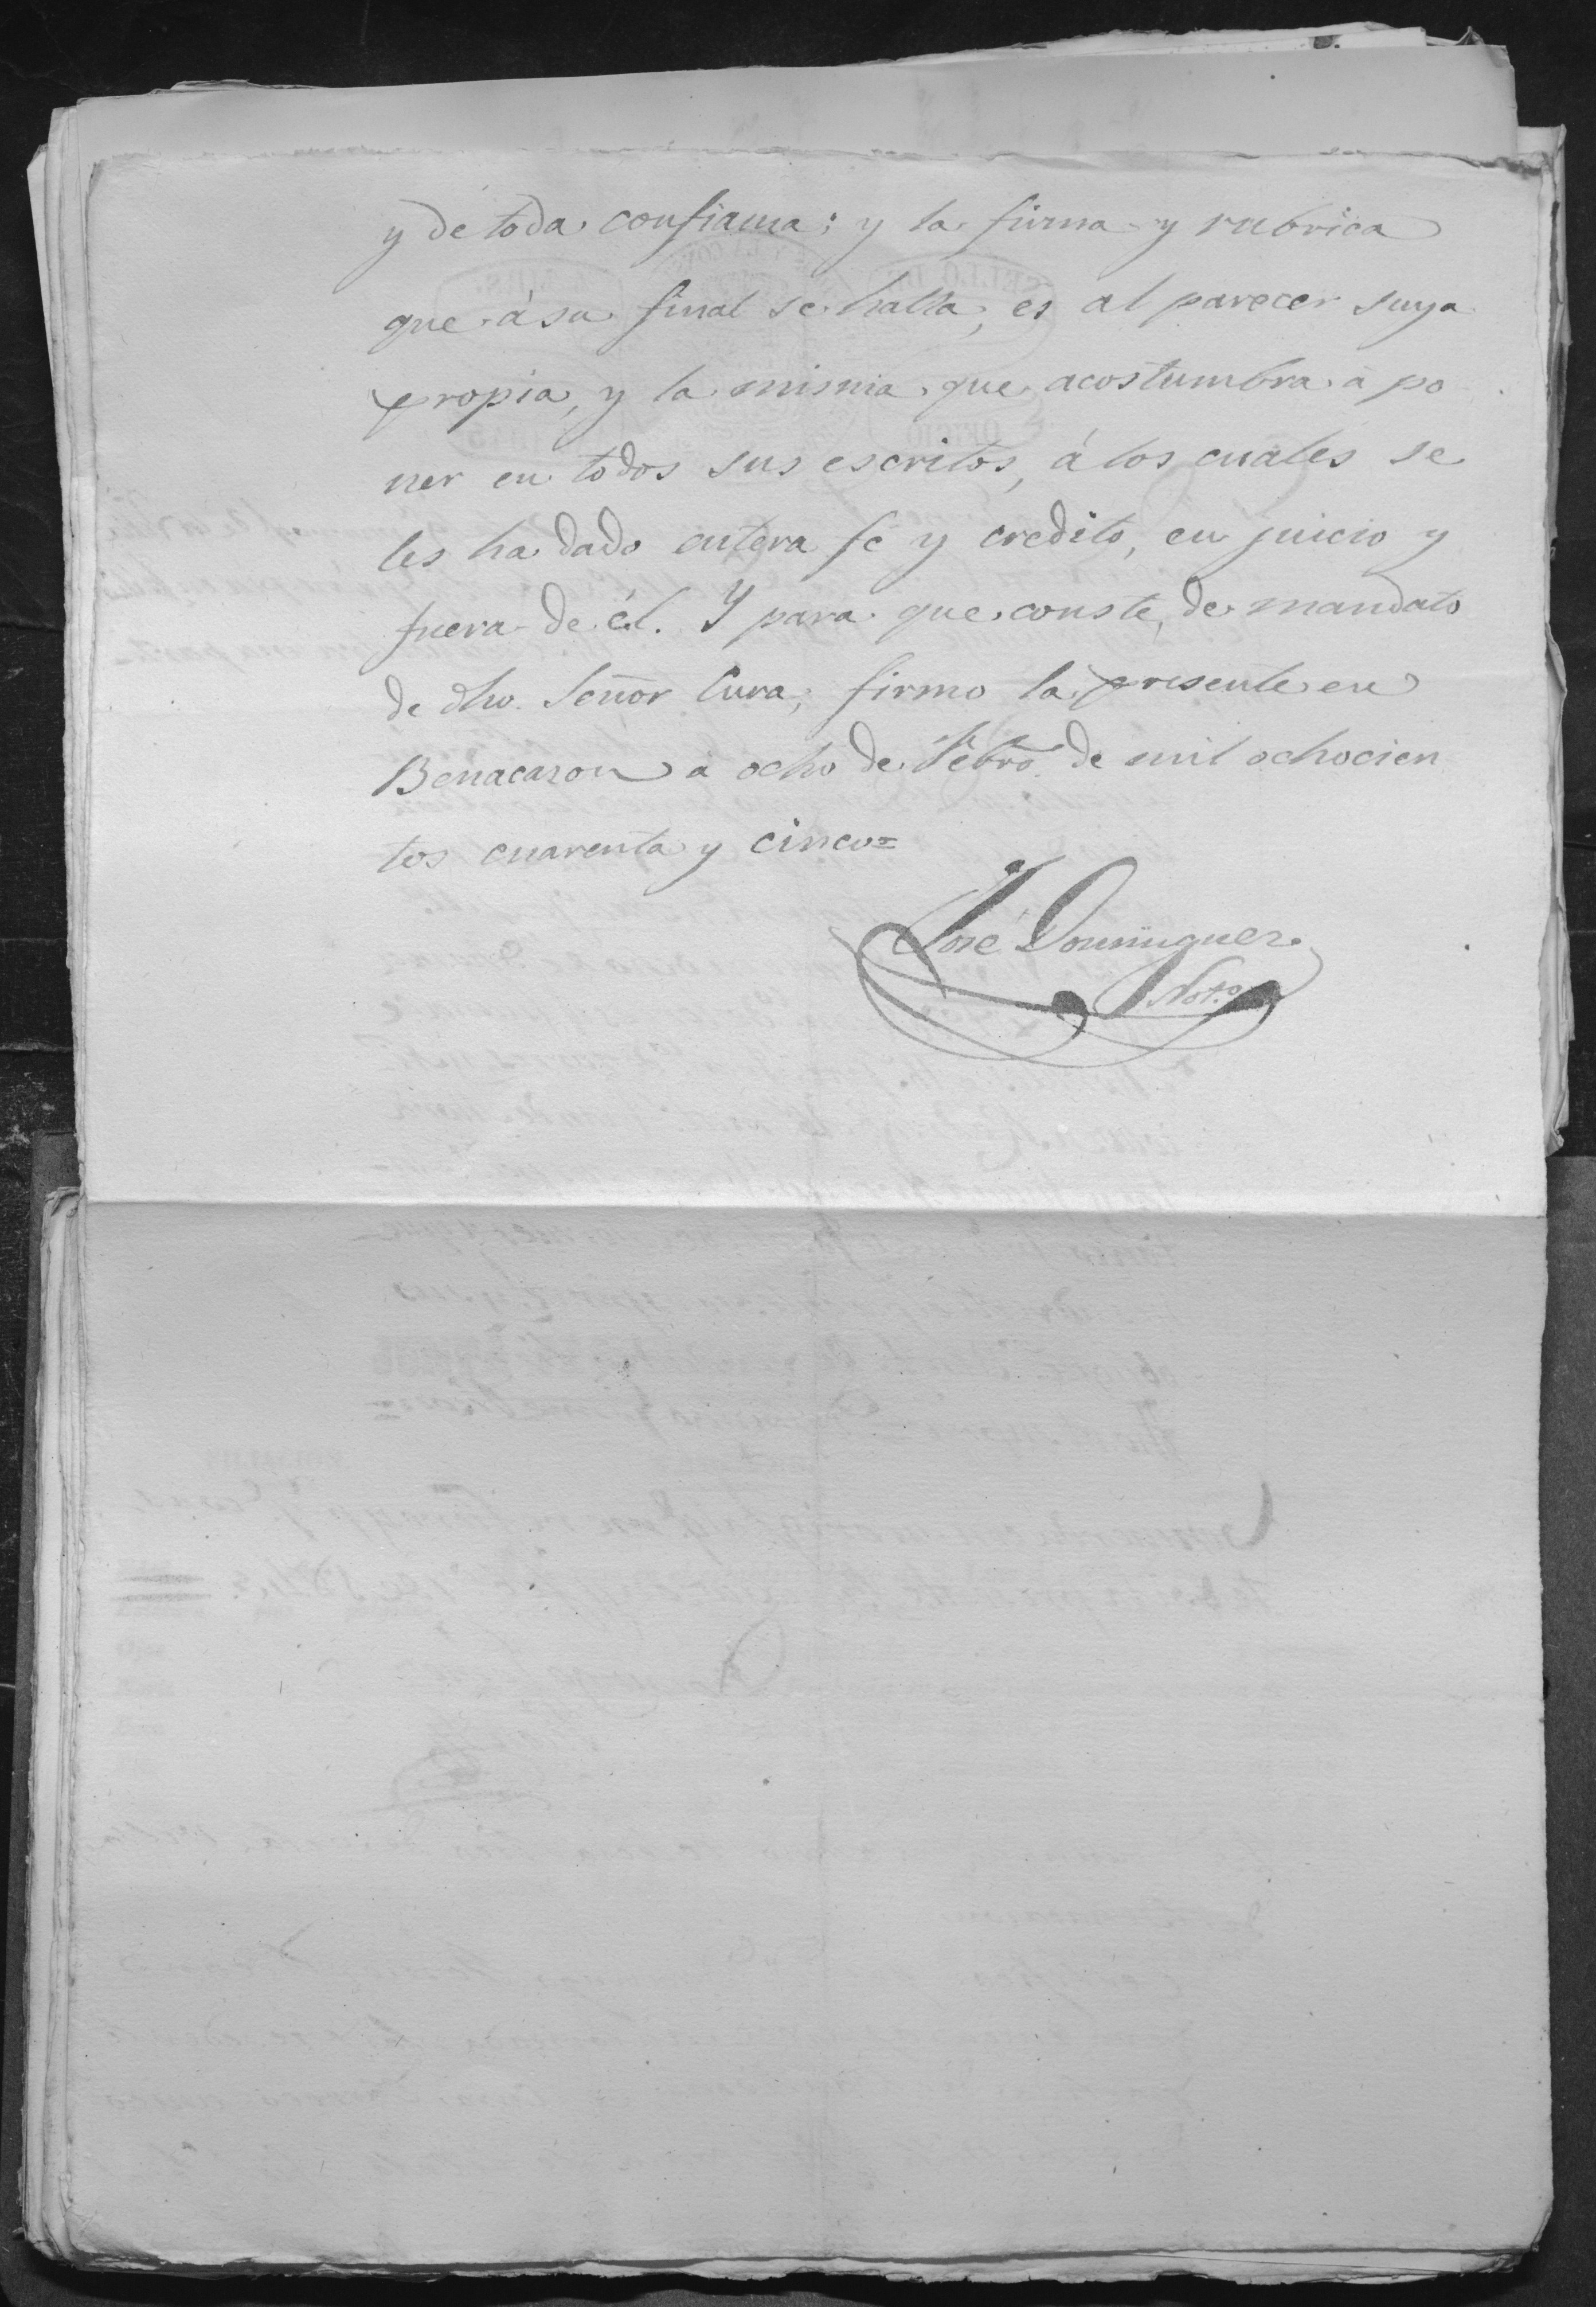 y de toda confianza; y la firma y rubrica
que á su final se halla, es al parecer suya
propia, y la misma que acostumbra á po
ner en todos sus escritos, á los cuales se
les ha dado entera fe y credito, en juicio y
fuera de él. Y para que conste, de mandato
de dho. Señor Cura, firmo la presente en
Benacazon á ocho de Febro. de mil ochocien
tos cuarenta y cinco=
José Dominguez.
Noto.